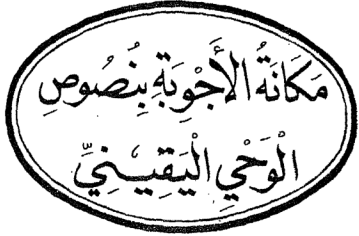 مَكَانَةُ الأَجْوِبَةِ بِنُصُوصِ
الْوَحْيِ الْيَقِينِيِّ